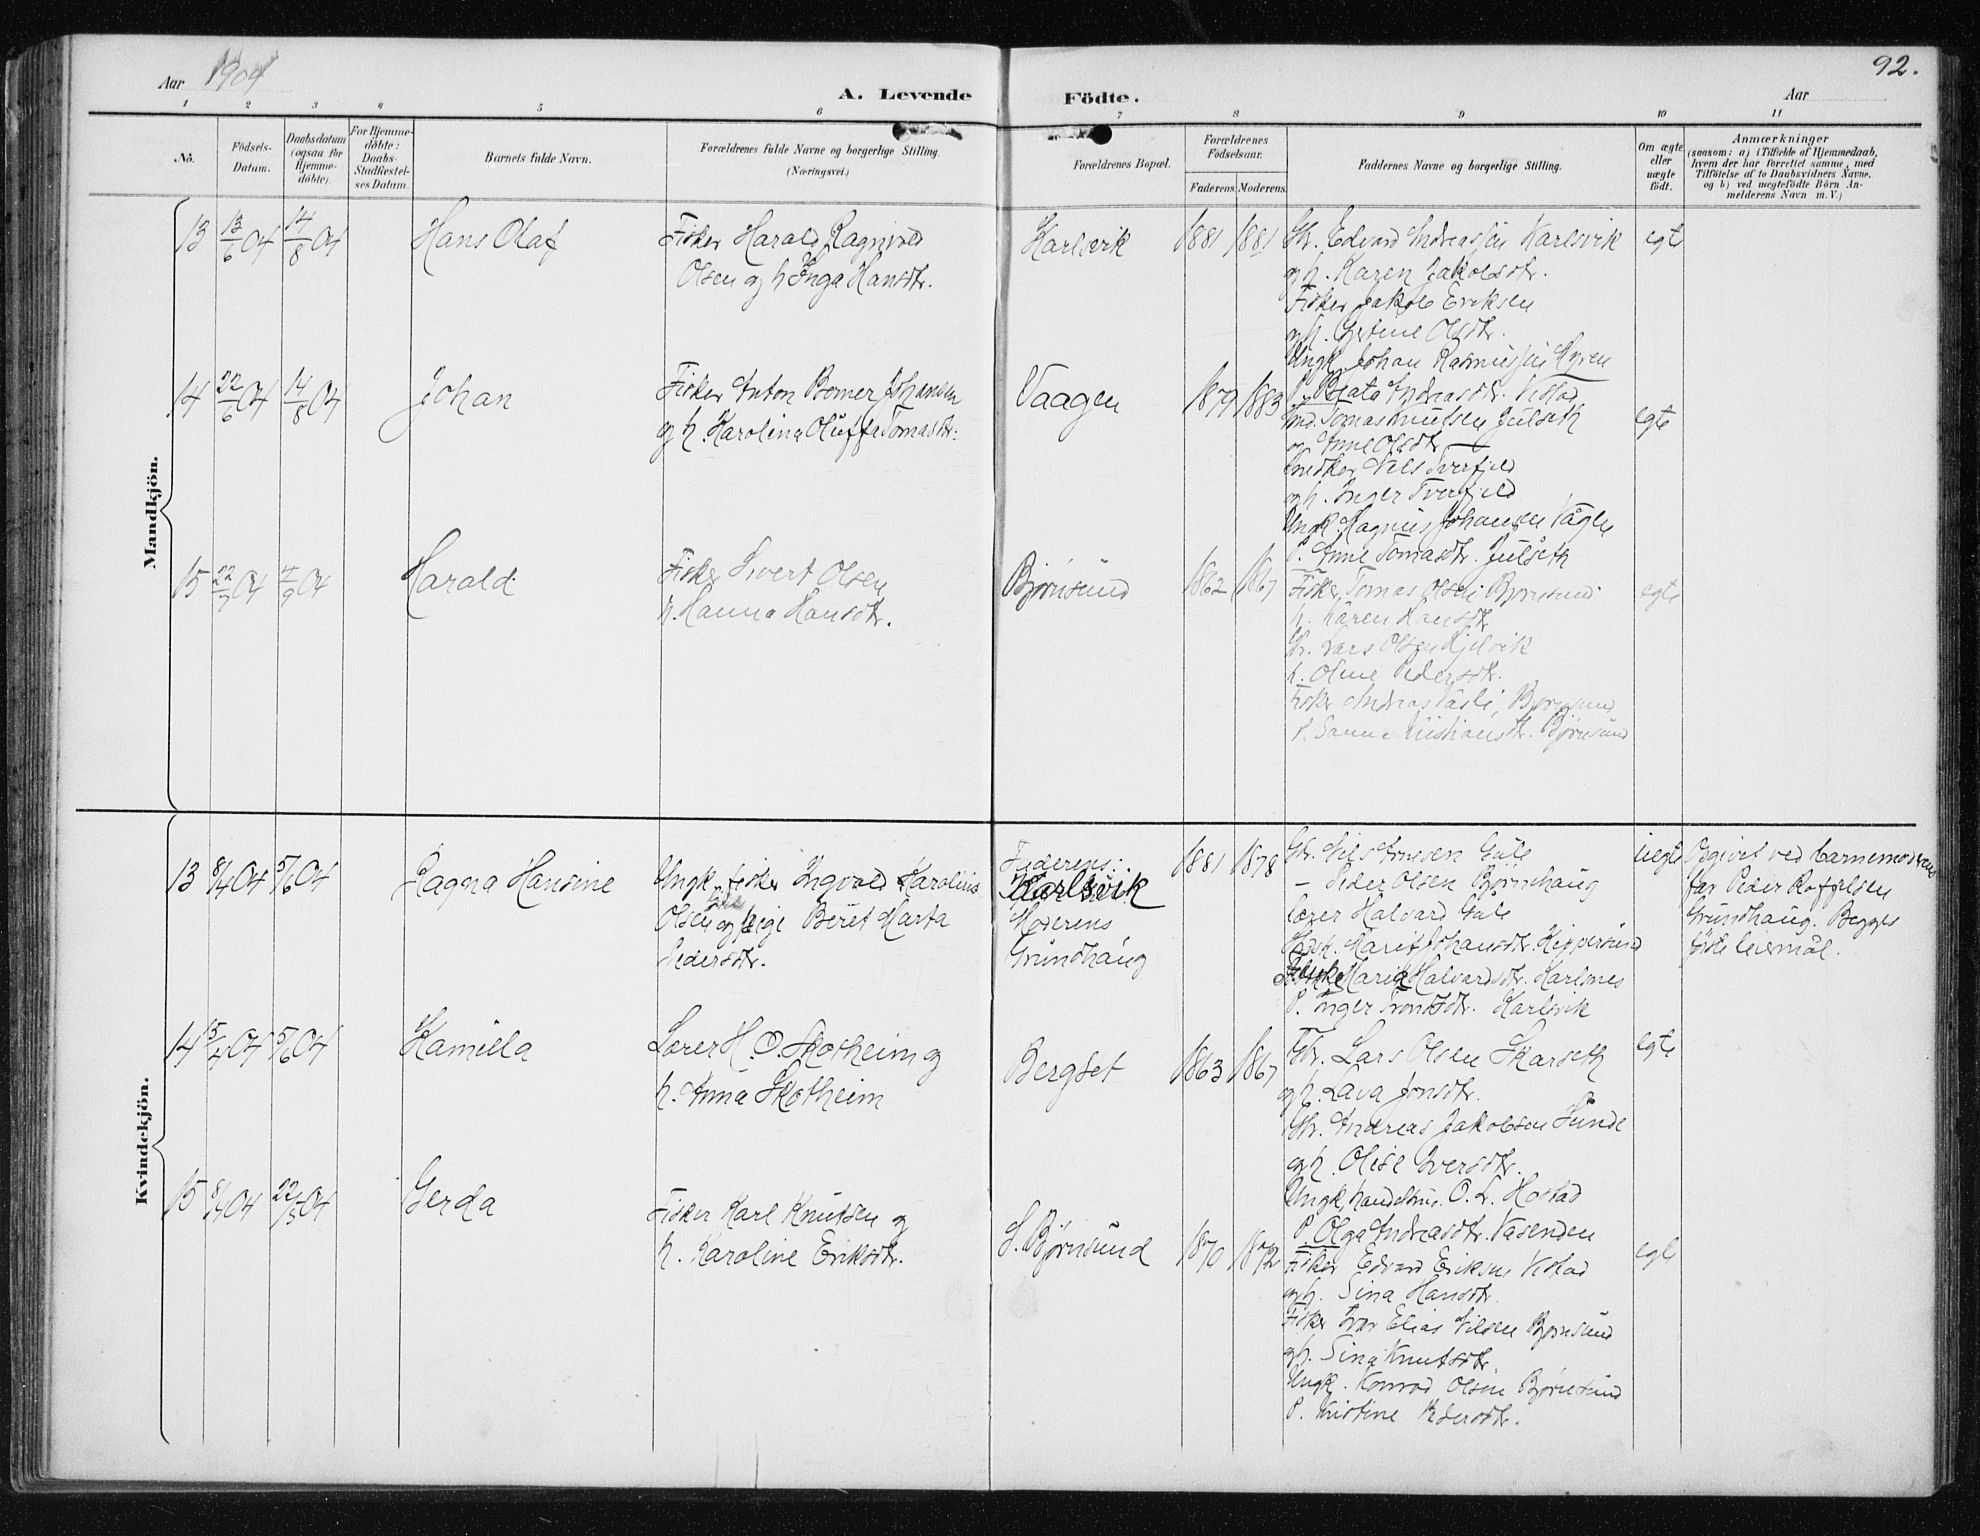 92.
Aar 1904
A. Levende Födte.
Aar
1 2 3 4 5 6 7 8 9 10 11
No.
Födsels-Datum.
Daabsdatum (ogsaa for Hjemme-döbte).
For Hjemme-döbte: Daabs-Stadfæstel-ses Datum.
Barnets fulde Navn.
Forældrenes fulde Navne og borgerlige Stilling. (Næringsvei.)
Forældrenes Bopæl.
Forældrenes Födselsaar.
Faderens. Moderens.
Faddernes Navne og borgerlige Stilling.
Om ægte eller uægte födt.
Anmærkninger
(saasom: a) i Tilfælde af Hjemmedaab,
hvem der har forrettet samme, med
Tilföielse af to Daabsvidners Navne.
og b) ved uægtefödte Börn An-
melderens Navn m. V.)
Mandkjön.
13 13/6 04 14/8 04 Hans Olaf
Fisker Harald Ragnvald
Olsen og h Inga Hansdtr.
Karlsvik 1881 1881
Gbr. Edvard Andreassen Karlsvik
og h. Karen Jakobsdtr.
Fisker Jakob Eriksen
og h. Gjertine Olsdtr.
Ungk. Johan Rasmussen Hyren
P. Beata Andreasdtr. Vestad
egte
14 22/6 04 14/8 04 Johan
Fisker Anton Bomer Johansen
og h. Karolina Oluffa Tomasdtr.
Vaagen 1879 1883
Tomas Knutsen Julseth
og Anne Olsdtr
Snedker Nils Tverfjeld
og h. Inger Tverfjeld
Ungk. Magnus Johansen Vågen
P. Anne Tomasdtr. Julseth
egte
15 22/7 04 4/9 04 Harald
Fisker Sivert Olsen
h. Hanna Hansdtr.
Bjørnsund 1862 1867
Fisker Tomas Olsen Bjørnsund
h. Karen Hansdtr
Gbr. Lars Olsen Hjelvik
h. Oline Pedersdtr.
Fisker Andreas Bjørnsund
P. Bjørnsund
egte
Kvindekjön.
13 8/4 04 5/6 04 Ragna Hansine
Ungk. fisker Ingvald Karolius
Olsen og pige Beret Marta
Pedersdtr.
Faderens:
Karlsvik
Moderens
Grundhaug
1881 1878
Gbr. Nils Arnesen Gule
– Peder Olsen Bjørnehaug
Lærer Halvard Gule
Marit Johansdtr.
Halvardsdtr. Karlsnes
P. Inger Karlsvik
uegte
Opgivet ved barnemoderens
far Peder Rafaelsen
Grundhaug. Begges
første leiermål.
14 15/4 04 5/6 04 Kamilla
Lærer H. O. Skotheim og
h. Anna Skotheim
Bergset 1863 1867
Gbr. Lars Olsen Skarseth
og h. Lava Jonsdtr.
Gbr. Andreas Jakobsen Sunde
og h. Olise Iversdtr.
Ungk. O. L. Hostad
P. Olga Andreasdtr. Nasenden
egte
15 8/4 04 22/5 04 Gerda
Fisker Karl Knutsen og
h. Karoline Eriksdtr.
S. Bjørnsund 1870 1872
Fisker Edvard Eriksen Vestad
og h. Sina Hansdtr
Fisker Ivar Elias Nilsen Bjørnsund
og h. Sina Knutsdtr.
Ungk. Konrad Olsen Bjørnsund
P. Kristine Pedersdtr.
egte